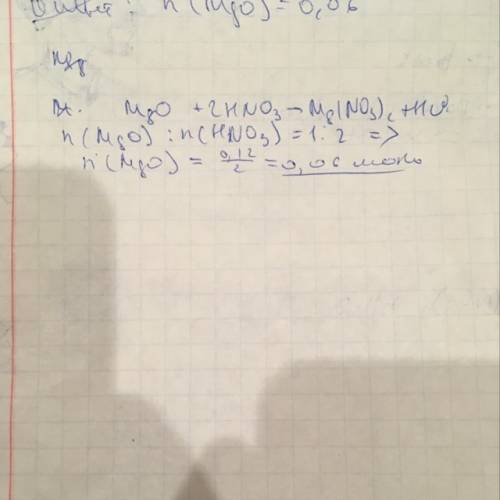 Ответ: n(MgO)=0,06
Mg
MgO + 2HNO3 → Mg(NO3)2 + H2O
n(MgO):n(HNO3)=1:2 =>
n(MgO) = 0,12/2 = 0,06 моль